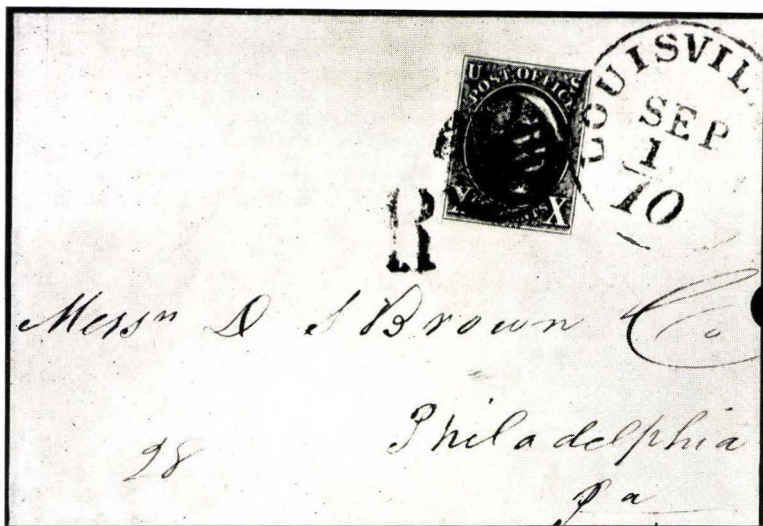 U S
POST OFFICE
X X
LOUISVIL
SEP
1
10
R
Messrs D S Brown Co
28 Philadelphia
Pa